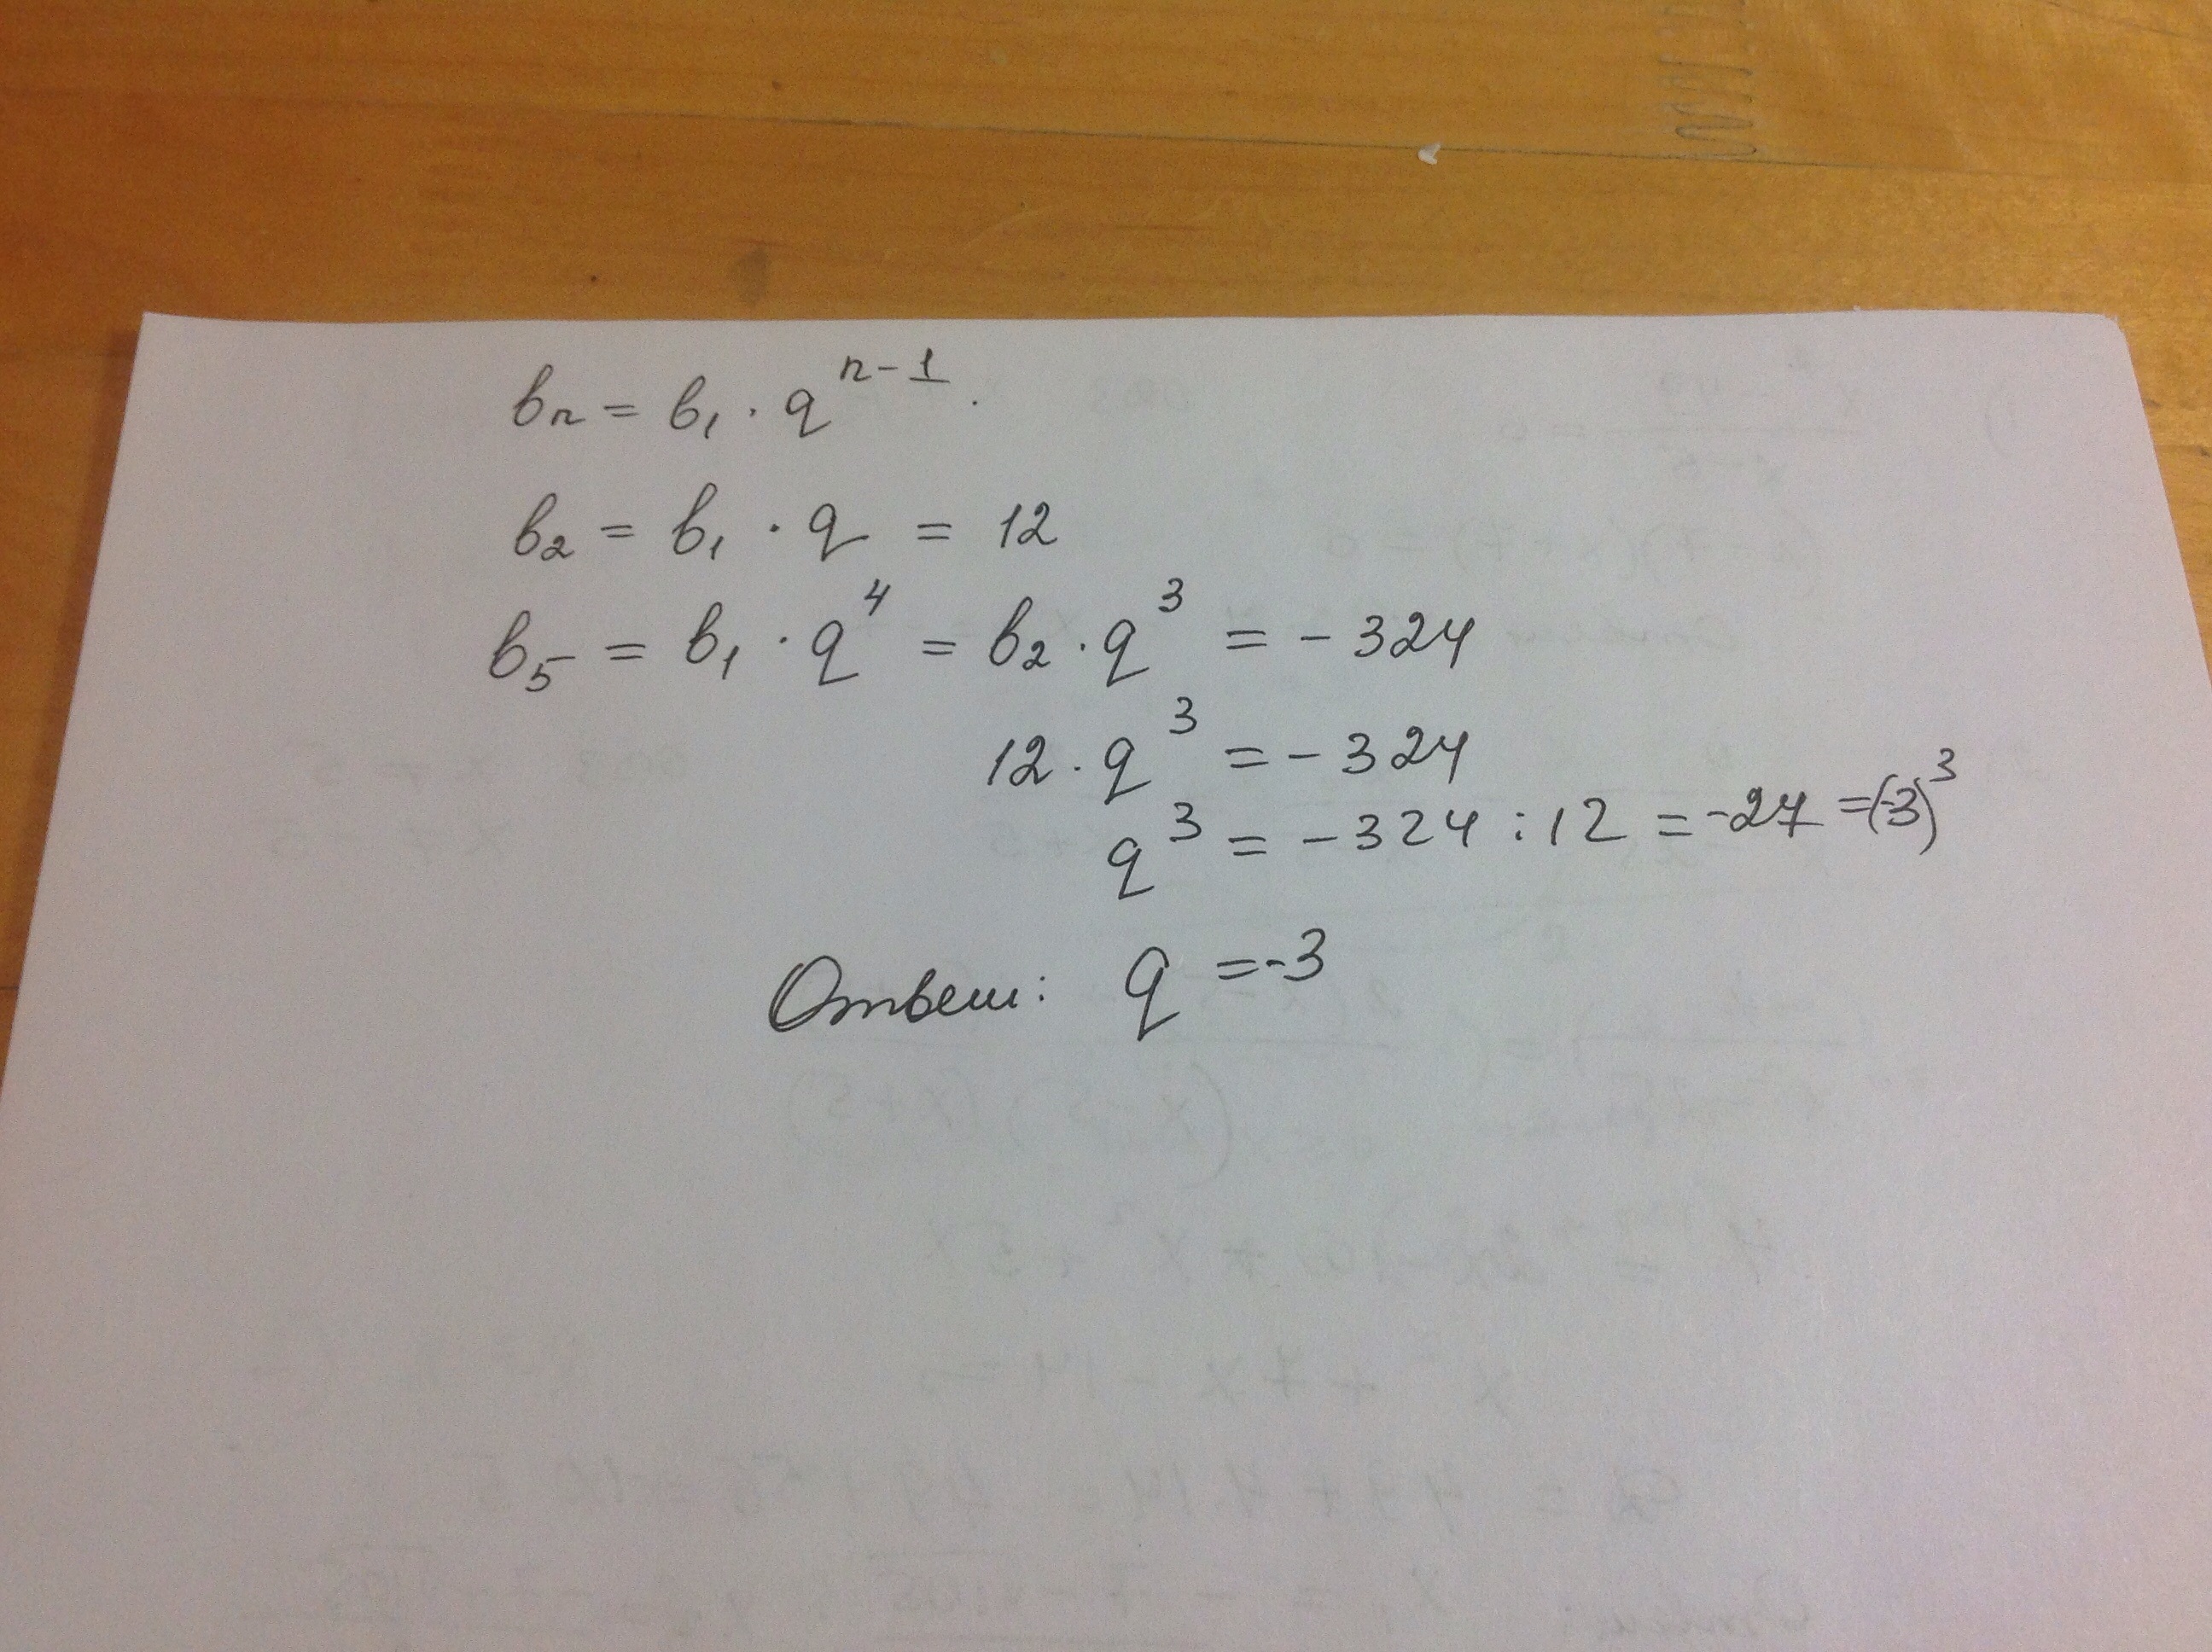 bₙ = b₁ · qⁿ⁻¹.
b₂ = b₁ · q = 12
b₅ = b₁ · q⁴ = b₂ · q³ = -324
12 · q³ = -324
q³ = -324 : 12 = -27 = (-3)³
Ответ: q = -3